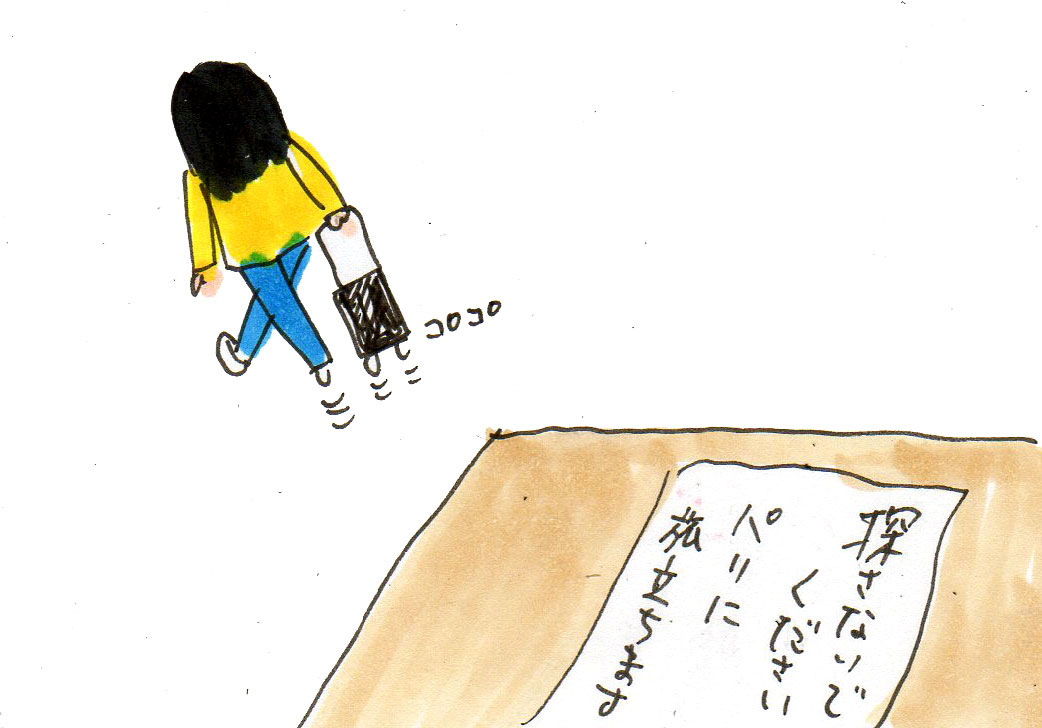 コロコロ
探さないで
ください
パリに
旅立ちます